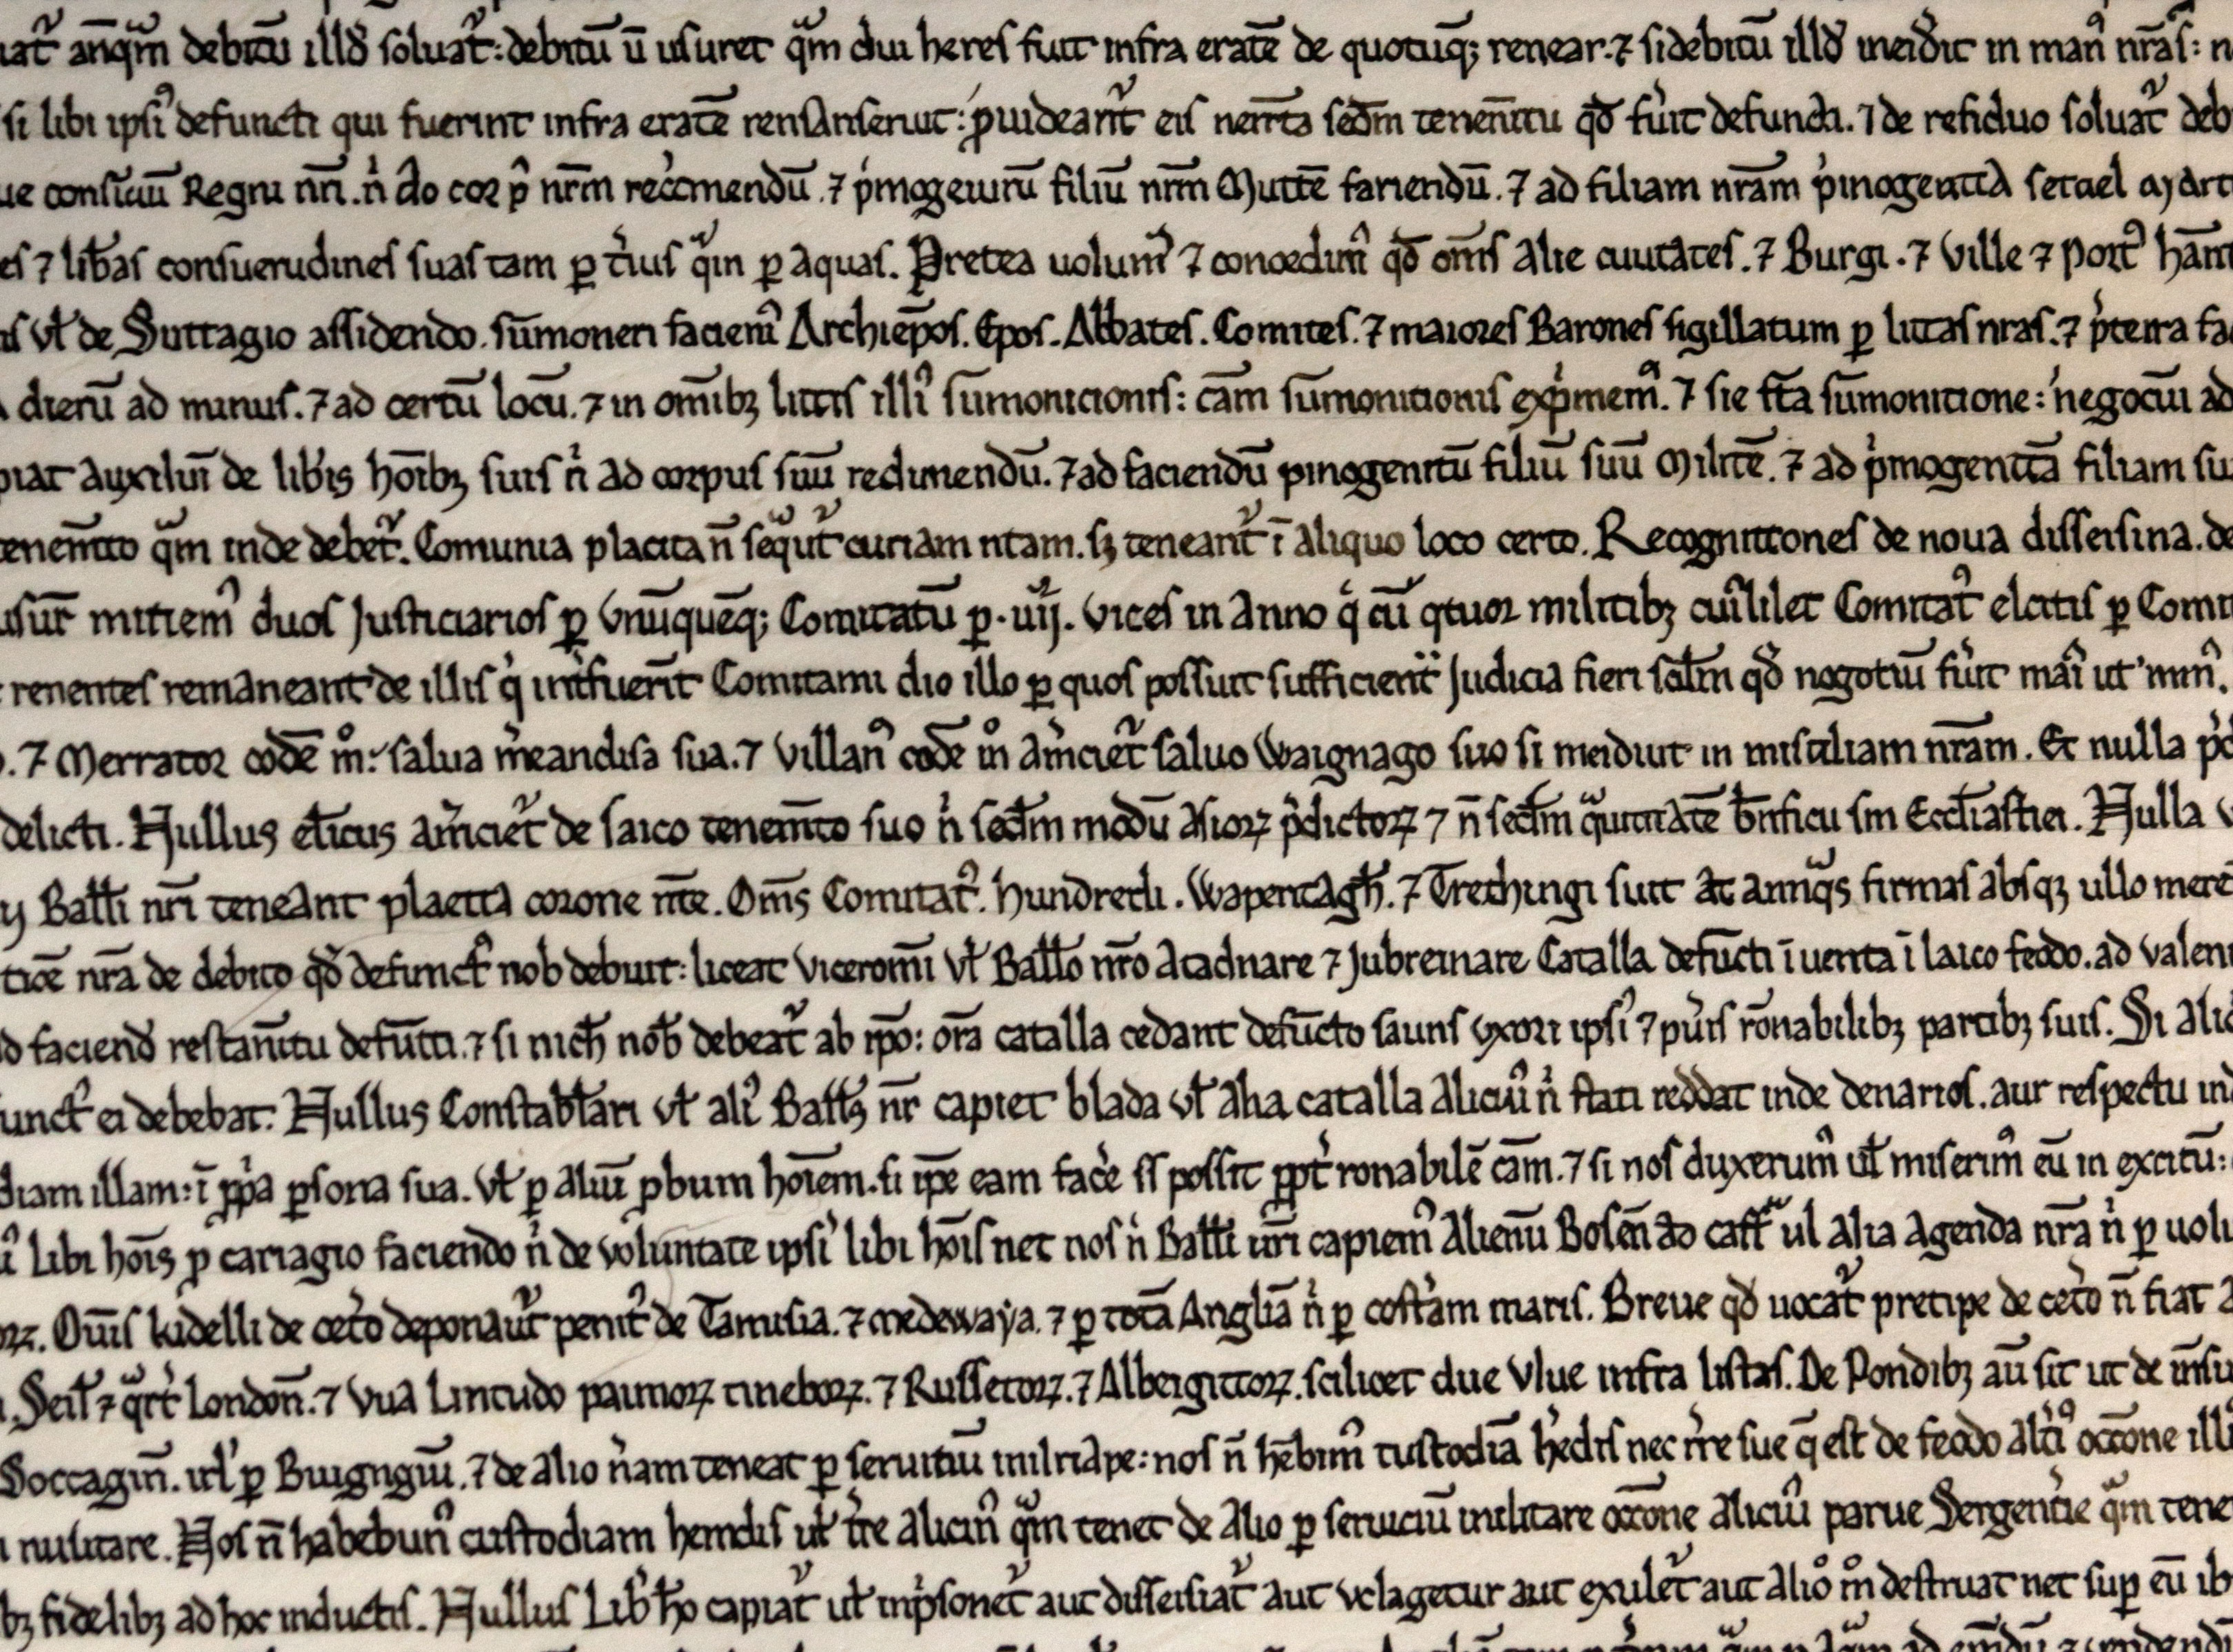 uat᷑ anq̃m debitū illđ soluat᷑: debitū ū usuret q̃m diu heres fuit infra etatē de quocūq; teneat. ⁊ si debitū illđ incidit in man᷒ nr̄as: n
si libi ipsi᷒ defuncti qui fuerint infra etatē remanserint: ꝓuideant᷑ eis necc̄ia scđm tenem̄tū qđ fuit defuncti. ⁊ de residuo soluat᷑ deb
ue consiliū Regni nr̄i. n̓ ad corp᷒ nr̄m redimendū. ⁊ p̓mogenitū filiū nr̄m Militē faciendū. ⁊ ad filiam nr̄am p̓mogenitā semel mart
es ⁊ lib̄as consuetudines suas tam ꝑ t̓ras q̃m ꝑ aquas. Pretea uolum᷒ ⁊ concedim᷒ qđ om̄s alie ciuitates. ⁊ Burgi. ⁊ Ville ⁊ Port᷒ ham
is vł de Scuttagio assidendo. sum̄oneri faciem᷒ Archiep̄os. Ep̄os. Abbates. Comites. ⁊ maiores Barones sigillatum ꝑ litt̄as nr̄as. ⁊ p̓terea fa
dierū ad minus. ⁊ ad certū locū. ⁊ in om̄ibꝫ litt̄is illi᷒ sum̄onicionis: cām sum̄onitionis exp̓mem᷒. ⁊ sic fc̄a sum̄onitione: negociū ad
piat auxiliū de lib̄is hōibꝫ suis n̓ ad corpus suū redimendū. ⁊ ad faciendū pmogenitū filiū suū Militē. ⁊ ad p̓mogenitā filiam su
tenem̄to q̃m inde debet᷑. Comunia placita n̄ seq̃nt᷑ curiam nr̄am. sꝫ teneant᷑ ī aliquo loco certo. Recognitiones de noua disseisina. de
usur̄ mittem᷒ duos Justiciarios ꝑ Vnūquēq; Comitatū ꝑ .iiij. vices in anno q̓ cū q̃tuor militibꝫ cui᷒libet Comitat᷒ electis ꝑ Comi
tenentes remaneant de illis q̓ int̓fuer̄it Comitatui die illo ꝑ quos possint sufficient᷑ Judicia fieri scđm qđ negotiū fu̓it mai᷒ ut min᷒.
. ⁊ Mercator eodē m᷒: salua m̓candisa sua. ⁊ Villan᷒ eodē m᷒ am̓ciet᷑ saluo Waignagio suo si inciđint in mis̓cdiam nr̄am. Et nulla p̓d
delicti. Nullus cl̓icus am̓ciet᷑ de laico tenem̄to suo n̓ scđm modū alioꝝ p̓dictoꝝ ⁊ n̄ scđm q̃ntitatē b̄nficii sui Ecc̄liastici. Nulla v
ij Ball̓i nr̄i teneant placita corone nr̄e. Om̄s Comitat᷒. hundredi. Wapentagħ. ⁊ Trethingi sint ad antiq̃s firmas absqꝫ ullo incre
tice nr̄a de debito qđ defunct᷒ nob debuit: liceat vicecomī vł Ball̓o nr̄o atachiare ⁊ Inbreuiare Catalla defūcti īuenta ī laico feodo. ad valen
d faciend restam̄tū defūcti. ⁊ si nicħ nob̄ debeat᷑ ab ip̄o: om̄a catalla cedant defūcto saluis vxori ipsi᷒ ⁊ pu̓is rōnabilibꝫ partibꝫ suis. Si aliq
unct᷒ ei debebat. Nullus Constabular᷒ vł ali᷒ Ball̓s nr̄ capiet blada vł alia catalla alicui᷒ n̓ stati reddat inde denarios. aut respectū ind
diam illam: ī ꝓp̓a ꝑsona sua. vł ꝑ aliū ꝓbum hōiem. si ip̄e eam fac̓e n̄ possit ꝓpt̓ rōnabilē cām. ⁊ si nos duxerim᷒ uł miserim᷒ eū in excitū:
᷒ libi hōis ꝑ cariagio faciendo n̓ de voluntate ipsi᷒ libi hōis nec nos n̓ Ball̓i nr̄i capiem᷒ alienū Boscū ad castr᷒ ul alia agenda nr̄a n̓ ꝑ uolu
oꝝ. Om̄s kidelli de cet̓o deponant᷑ penit᷒ de Tamisia. ⁊ medewaya. ⁊ ꝑ totā Angliā n̓ ꝑ cost̓am maris. Breue qđ uocat᷑ precipe de cet̓o n̄ fiat a
. Scil᷒ ⁊ q̃rt᷒ London̄. ⁊ Vna Latitudo pannoꝝ tinctoꝝ. ⁊ Russetoꝝ. ⁊ Albergittoꝝ. scilicet due Vlne infra listas. De Pondibꝫ aū sit ut de m̄su
Soccagiū. uł ꝑ Burgagiū. ⁊ de alio t̓ram teneat ꝑ seruitiū militare: nos n̄ hēbim᷒ custodiā h̓edis nec t̓re sue q̄ est de feodo alt̓i᷒ occ̄one illi᷒
militare. Nos n̄ habebim᷒ custodiam heredis uł t̓re alicui᷒ q̃m tenet de alio ꝑ seruiciū militare occ̄one alicui᷒ parue Sergent̓ie q̃m tene
bꝫ fidelibꝫ ad hoc inductis. Nullus Lib̓ hō capiat᷑ uł inp̓sonet᷑ aut disseisiat᷑ aut vtlagetur aut exulet᷑ aut alio᷒ m᷒ destruat nec suꝑ eū ib